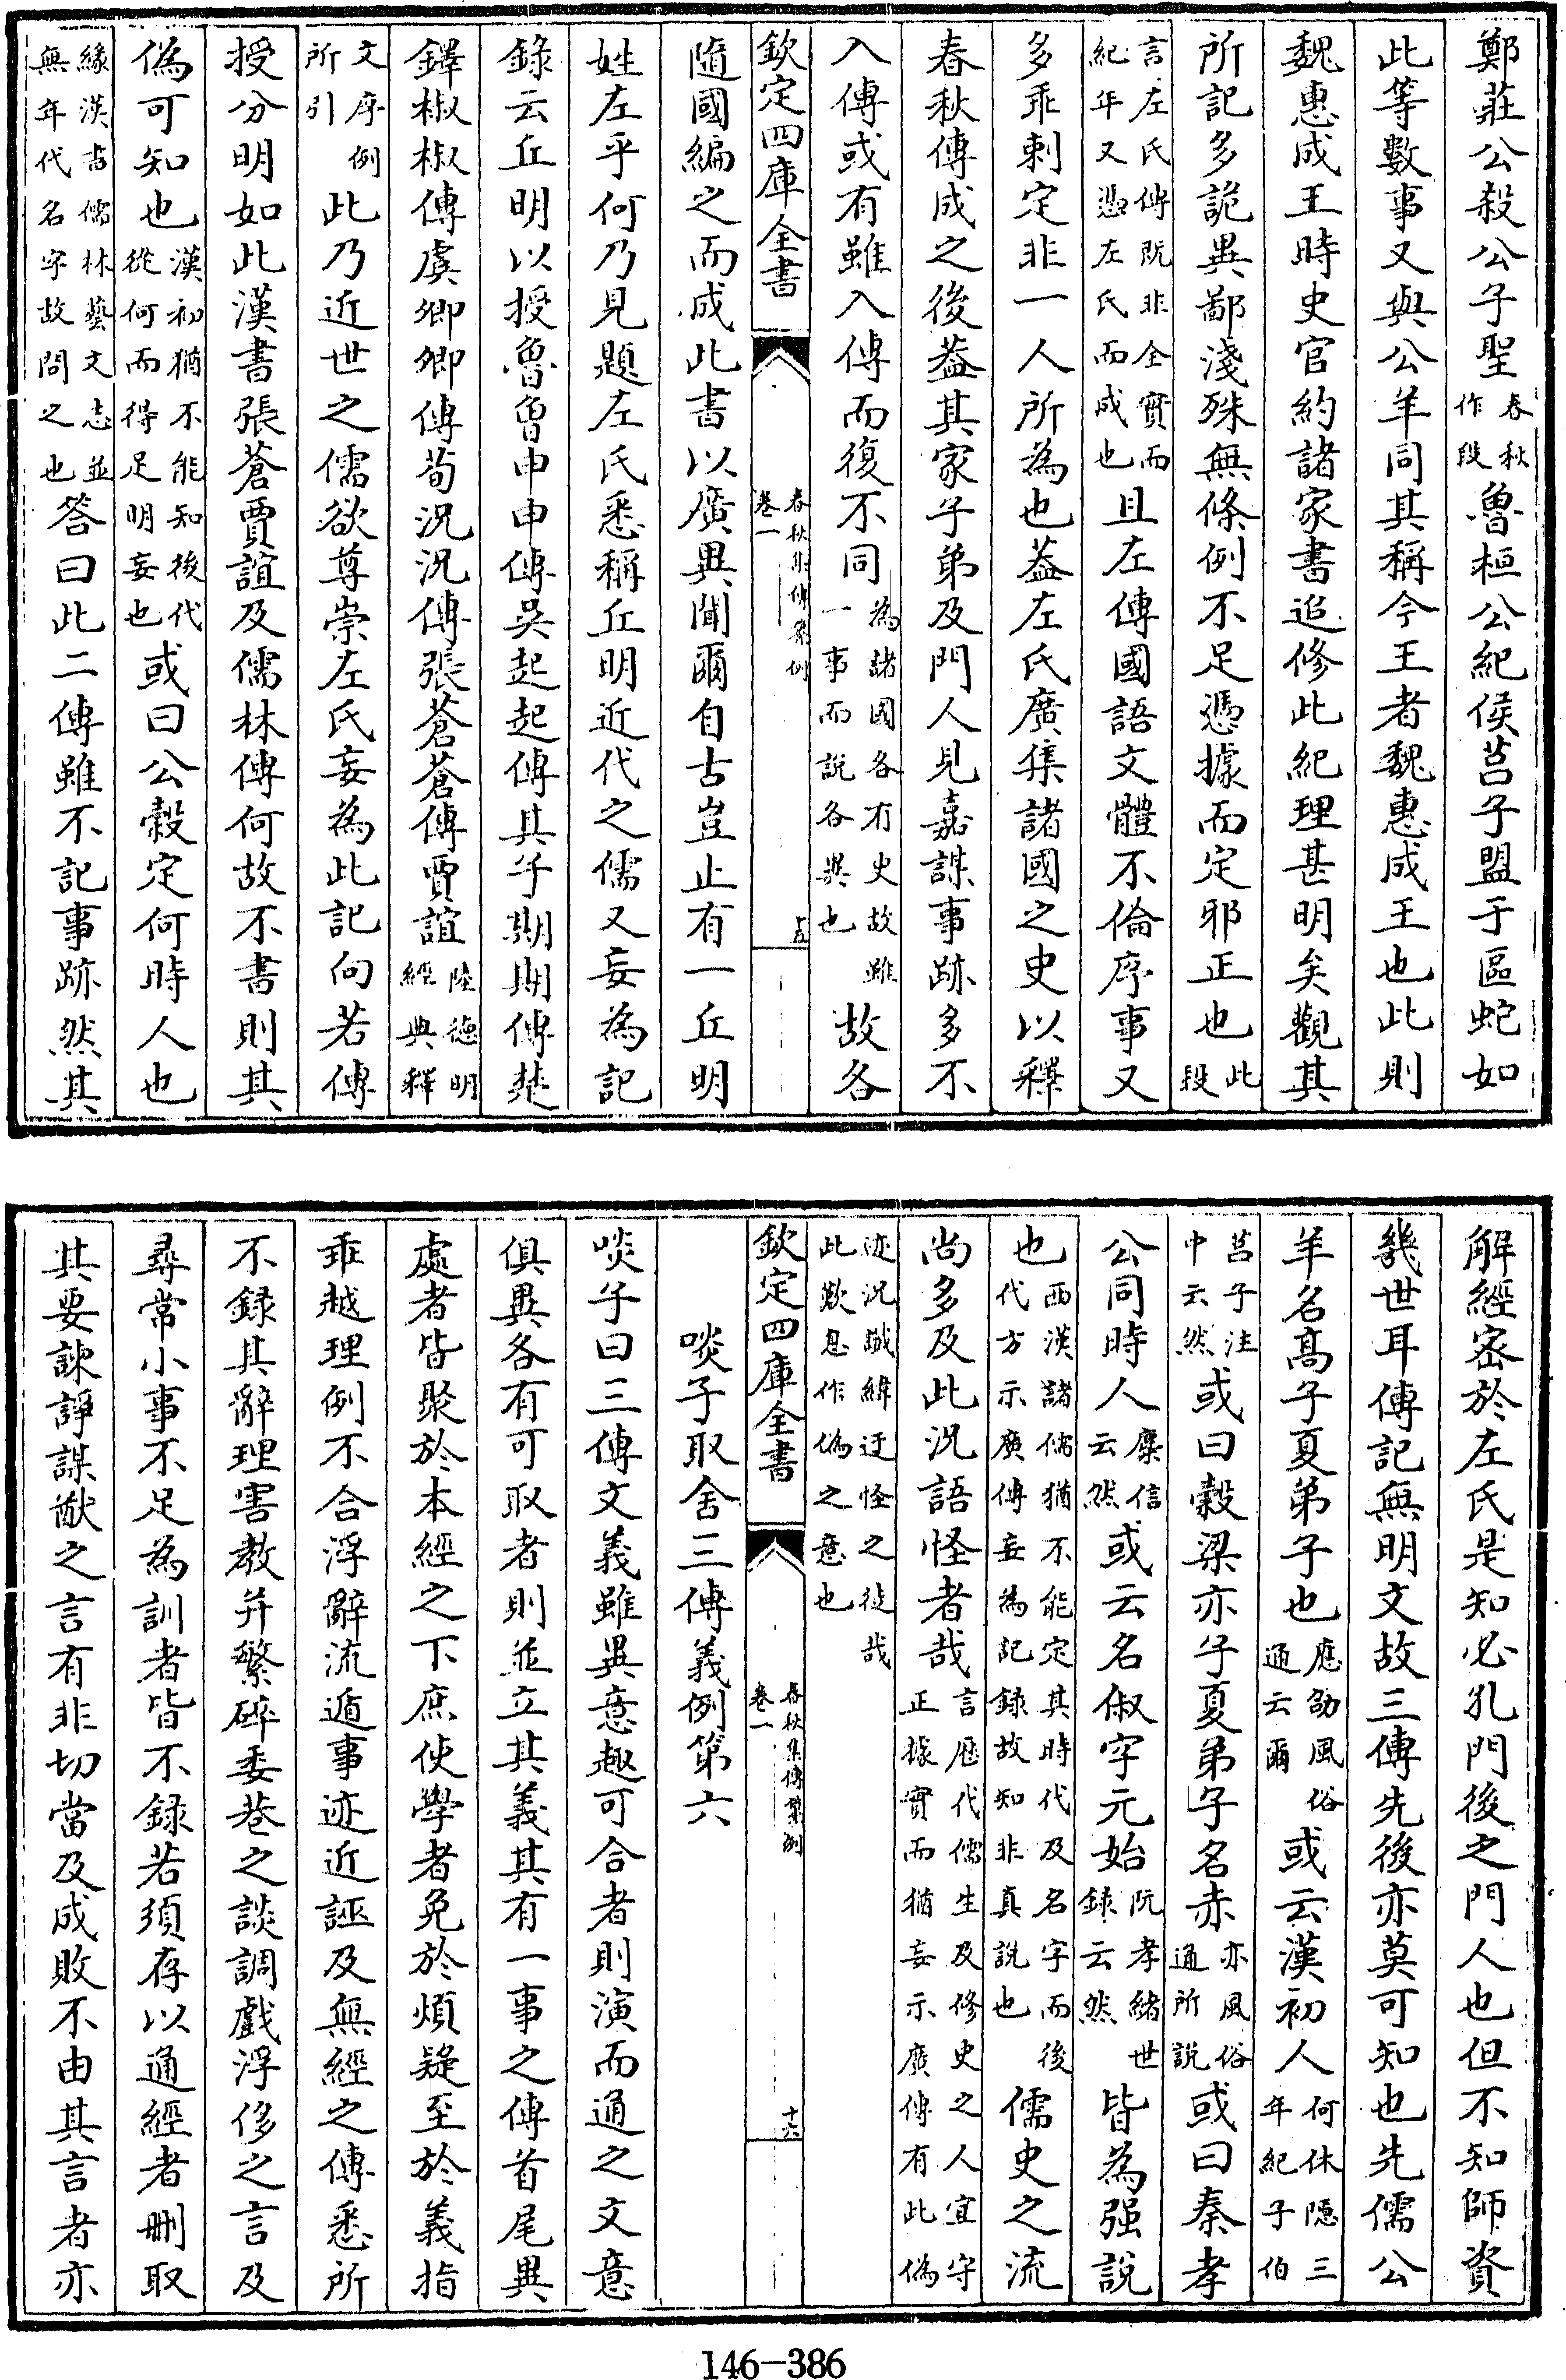 鄭莊公殺公子聖春秋作段魯桓公紀侯莒子盟于區蛇如
此等數事又與公羊同其稱今王者魏惠成王也此則
魏惠成王時史官約諸家書追修此紀理甚明矣觀其
所記多詭異鄙淺殊無條例不足憑據而定邪正也此段
言左氏傳既非全實而紀年又憑左氏而成也且左傳國語文體不倫序事又
多乖剌定非一人所為也蓋左氏廣集諸國之史以釋
春秋傳成之後蓋其家子弟及門人見嘉謀事跡多不
入傳或有雖入傳而復不同為諸國各有史故雖一事而說各異也故各
欽定四庫全書
春秋集傳纂例
卷一
十五
隨國編之而成此書以廣異聞爾自古豈止有一丘明
姓左乎何乃見題左氏悉稱丘明近代之儒又妄為記
錄云丘明以授魯曾申申傳吳起起傳其子期期傳楚
鐸椒椒傳虞卿卿傳荀況況傳張蒼蒼傳賈誼陸德明經典釋
文序例所引此乃近世之儒欲尊崇左氏妄為此記向若傳
授分明如此漢書張蒼賈誼及儒林傳何故不書則其
偽可知也漢初猶不能知後代從何而得足明妄也或曰公穀定何時人也
緣漢書儒林藝文志並無年代名字故問之也答曰此二傳雖不記事跡然其
解經密於左氏是知必孔門後之門人也但不知師資
幾世耳傳記無明文故三傳先後亦莫可知也先儒公
羊名高子夏弟子也應劭風俗通云爾或云漢初人何休隱三年紀子伯
莒子注中云然或曰穀梁亦子夏弟子名赤亦風俗通所說或曰秦孝
公同時人麋信云然或云名俶字元始阮孝緒世錄云然皆為强說
也西漢諸儒猶不能定其時代及名字而後代方示廣傳妄為記録故知非真說也儒史之流
尚多及此況語怪者哉言歷代儒生及修史之人宜守正據實而猶妄示廣傳有此偽
迹況讖緯迂怪之徒哉此歎息作偽之意也
欽定四庫全書
春秋集傳纂例
卷一
十六
啖子取舍三傳義例第六
啖子曰三傳文義雖異意趣可合者則演而通之文意
俱異各有可取者則並立其義其有一事之傳首尾異
處者皆聚於本經之下庶使學者免於煩疑至於義指
乖越理例不合浮辭流遁事迹近誣及無經之傳悉所
不錄其辭理害教并繁碎委巷之談調戲浮侈之言及
尋常小事不足為訓者皆不録若須存以通經者刪取
其要諫諍謀猷之言有非切當及成敗不由其言者亦
146-386